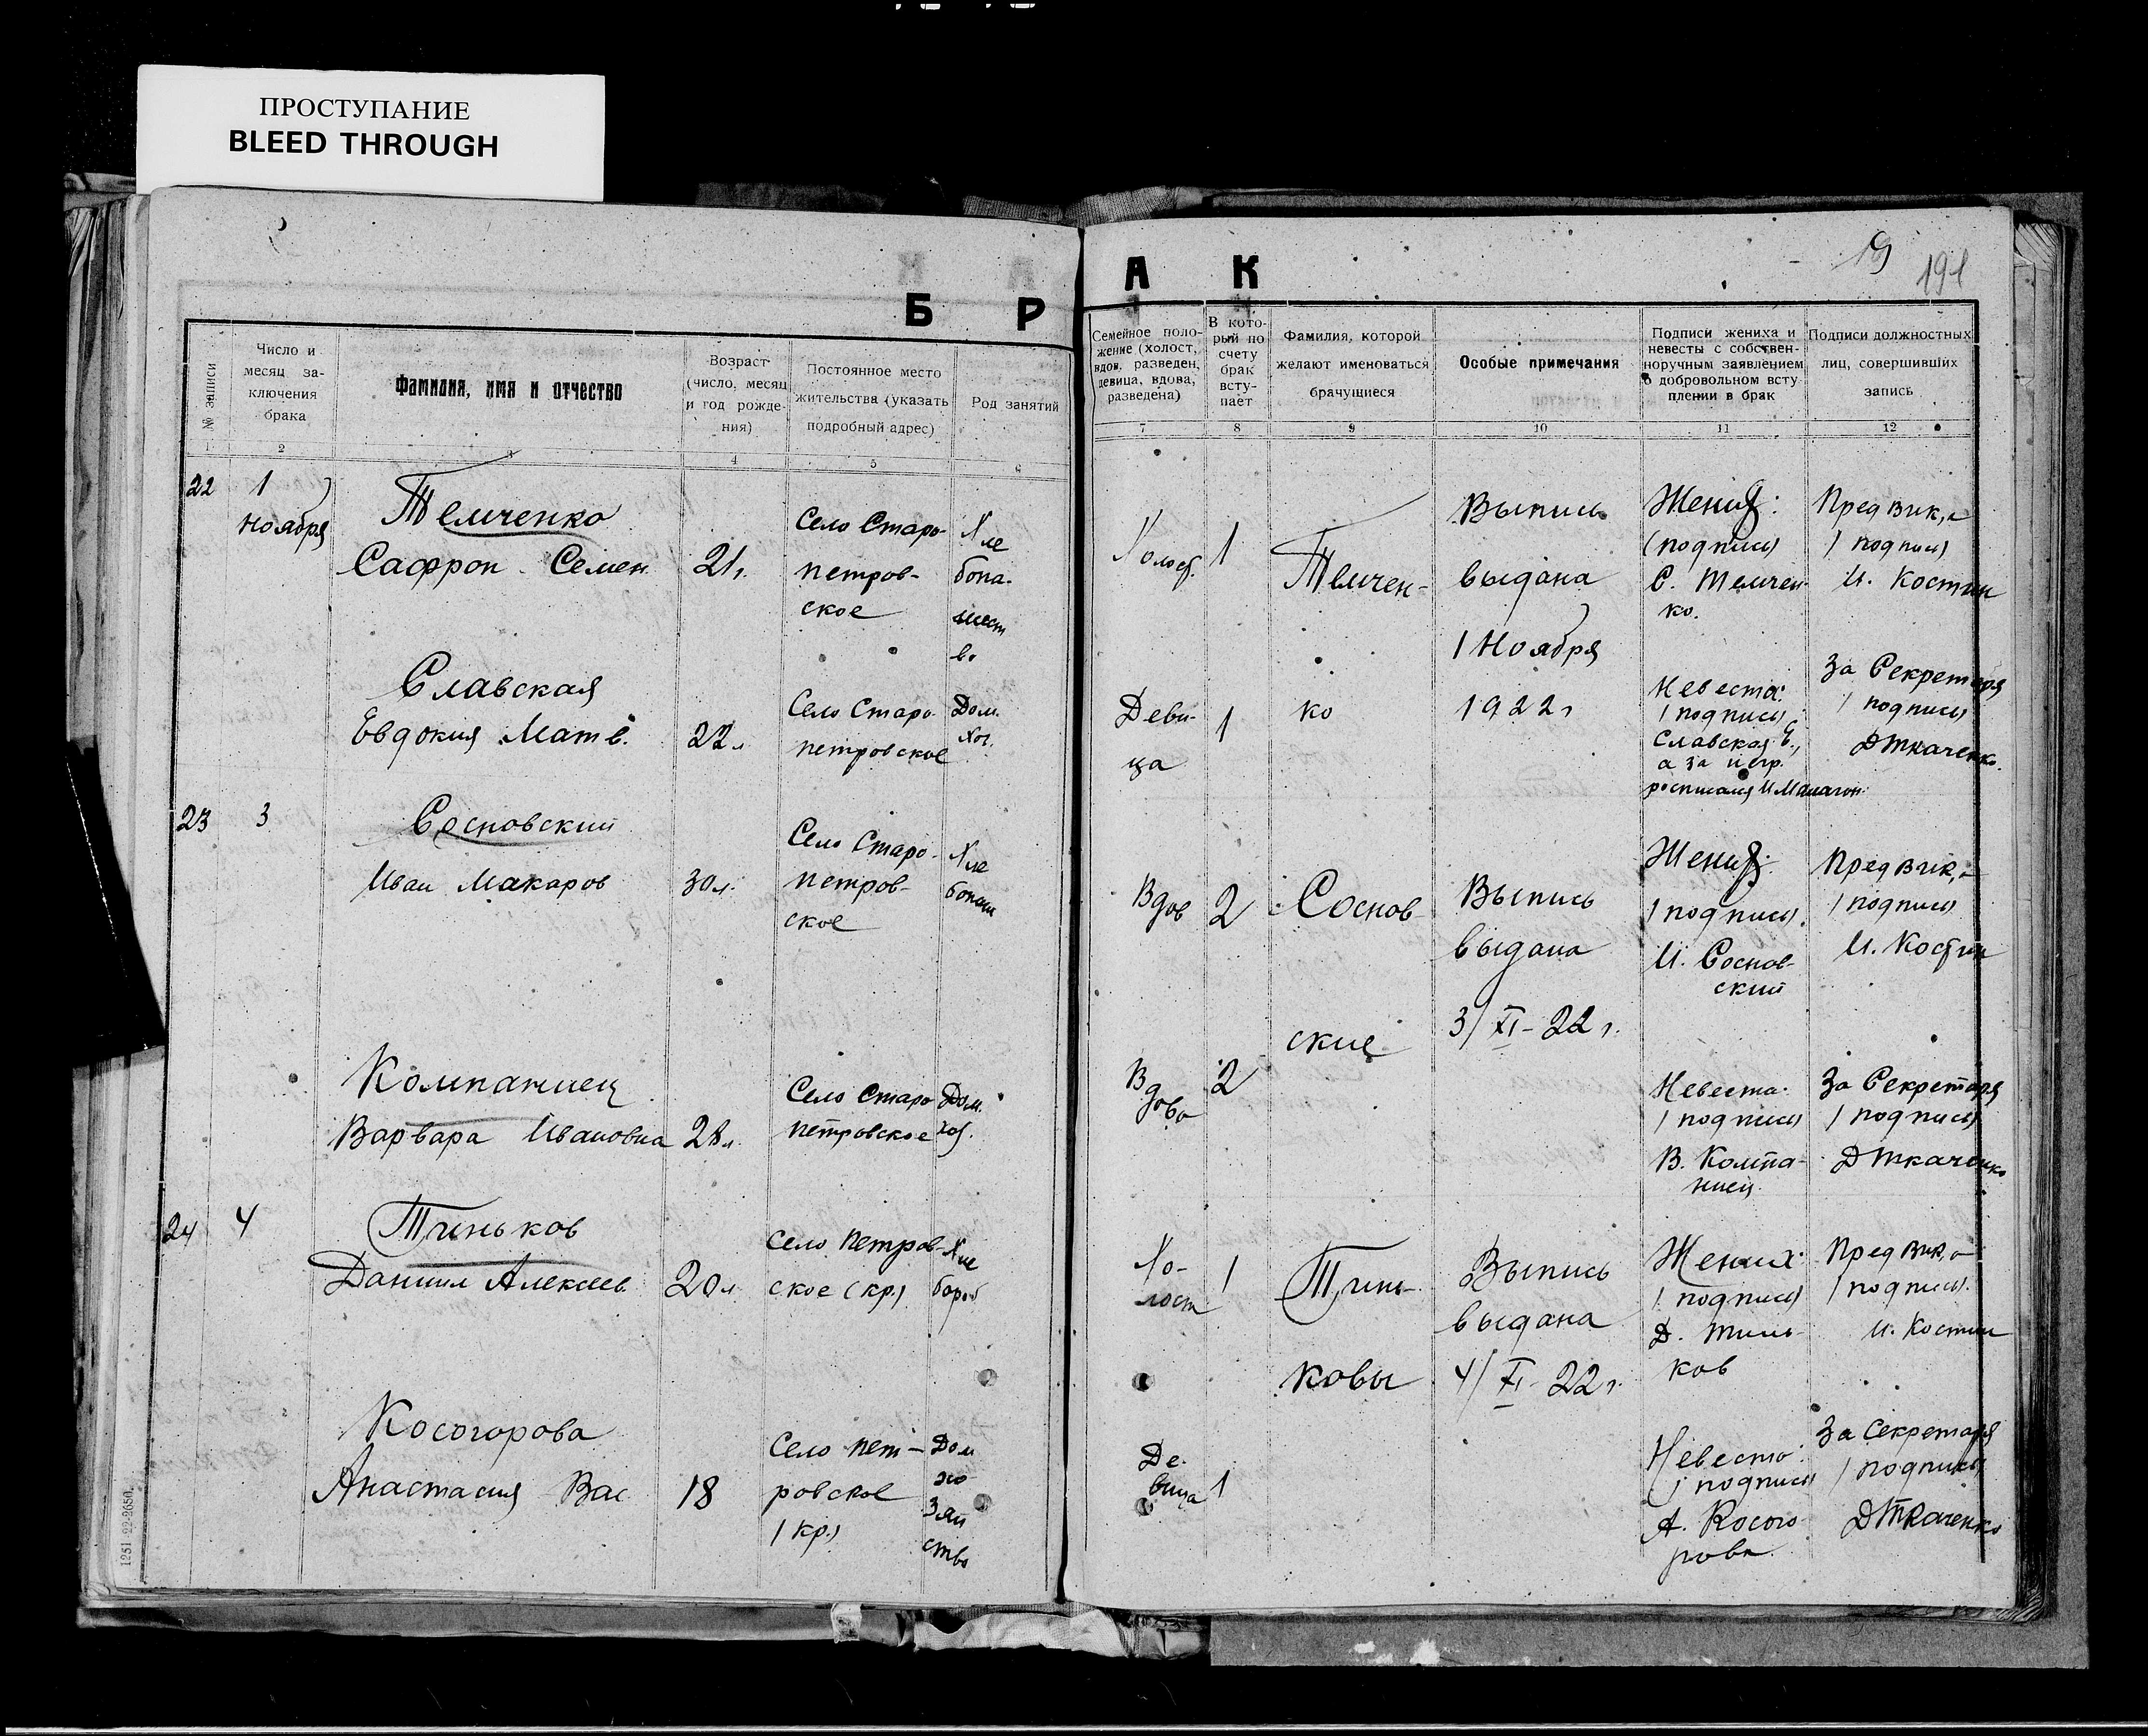 ПРОСТУПАНИЕ
BLEED THROUGH
19
191
Б Р А К
№ записи
Число и
месяц за-
ключения
брака
Фамилия, имя и отчество
Возраст
(число, месяц
и год рожде-
ния)
Постоянное место
жительства (указать
подробный адрес)
Род занятий
Семейное поло-
жение (холост,
вдов, разведен,
девица, вдова,
разведена)
В кото-
рый по
счету
брак
всту-
пает
Фамилия, которой
желают именоваться
брачущиеся
Особые примечания
Подписи жениха и
невесты с собствен-
норучным заявлением
о добровольном всту
плении в брак
Подписи должностных
лиц, совершивших
запись
1 2 3 4 5 6 7 8 9 10 11 12
22
1
Ноября
Темченко
Сафрон Семен
21 г.
Село Старо-
петров-
ское
Хле
бопа-
шест
во
Холост.
1
Темчен-
Выпись
выдана
1 Ноября
1922 г
Жених:
(подпись)
С. Темчен-
ко.
Пред Вик,а
(подпись)
И. Костин
Славская
Евдокия Матв.
22 л
Село Старо-
петровское
Дом.
Хоз.
Деви-
ца
1
ко
Невеста:
(подпись)
Славская Е.,
а за негр.
росписался И
За Секретаря
(подпись)
ДТкаченко.
23
3
Сосновский
Иван Макаров
30 л.
Село Старо-
петров-
ское
Хле
бопаш
Вдов
2
Соснов-
Выпись
выдана
3/XI-22 г.
Жених:
(подпись)
И. Соснов-
ский
Пред Вик,а
(подпись)
И. Костин
Компаниец
Варвара Ивановна
28 л.
Село Старо
петровское
Дом.
хоз.
Вдова
2
ские
Невеста:
(подпись)
В. Компа-
ниец
За Секретаря
(подпись)
ДТкаченко
24
4
Тиньков
Даниил Алексеев
20 л
Село Петров-
ское (кр.)
Хле
бороб
Хо-
лост
1
Тинь-
Выпись
выдана
4/XI-22 г.
Жених:
(подпись)
Д. Тинь-
ков
Пред Вик,а
(подпись).
И. Костин
Косогорова
Анастасия Вас
18
Село Пет-
ровское
(кр.)
Дом
хо
зяй
ство
Де-
вица
1
ковы
Невеста:
(подпись)
А. Косого
рова.
За Секретаря
(подпись)
ДТкаченко
1251-22-2650.